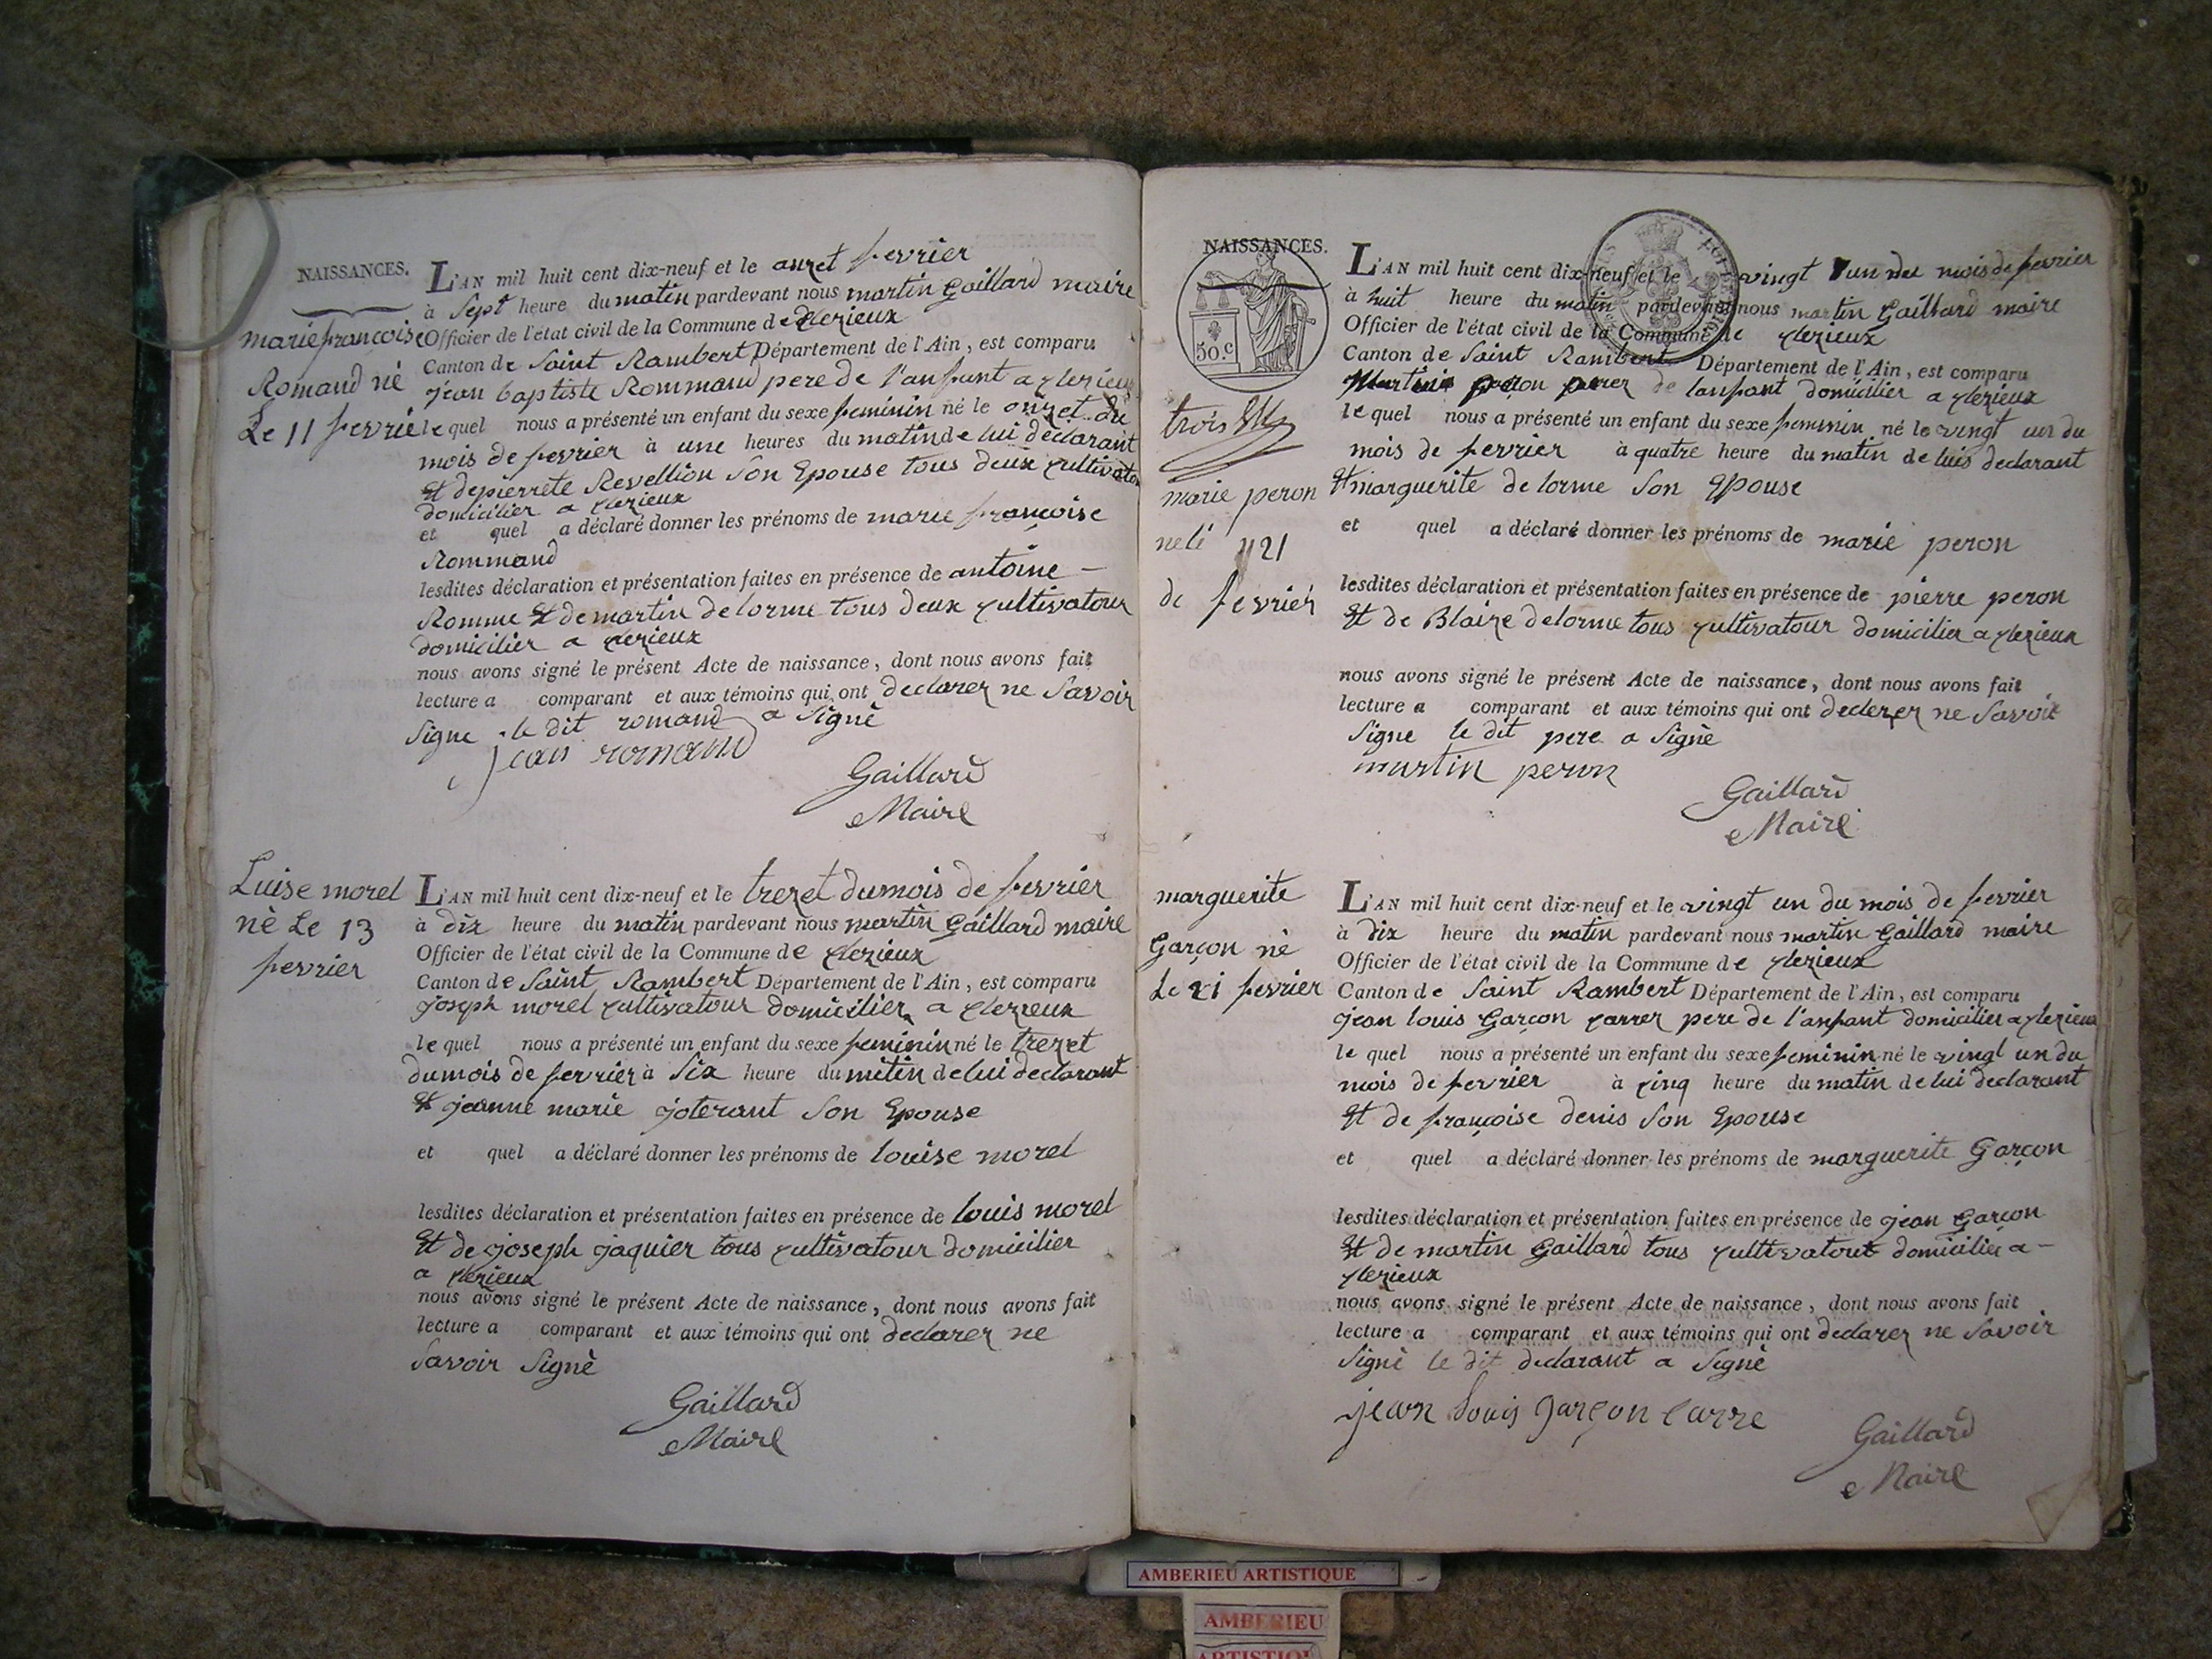 NAISSANCES.
mariefrancoise
Romand né
Le 11 fevrie
L'AN mil huit cent dix-neuf et le onzet fevrier
à Sept heure du matin pardevant nous martin Gaillard maire
Officier de l'état civil de la Commune de clezieux
Canton de Saint Rambert Département de l'Ain, est comparu
jean baptiste Rommand pere de l'anfant a clezieux
le quel nous a présenté un enfant du sexe feminin né le onzet du
mois de fevrier à une heures du matin de lui déclarant
Et depierrete Revellion Son Epouse tous deux cultivato
domicilier a clezieux
et quel a déclaré donner les prénoms de marie françoise
Rommand
lesdites déclaration et présentation faites en présence de antoine -
Romme Et de martin delorme tous deux cultivatour
domicilier a clezieux
nous avons signé le présent Acte de naissance, dont nous avons fait
lecture a comparant et aux témoins qui ont declarer ne Savoir
Signe . le dit romand a Signè
jean romand
Gaillard
Maire
Luise morel
nè Le 13
fevrier
L'AN mil huit cent dix-neuf et le trezet dumois de fevrier
à dix heure du matin pardevant nous martin Gaillard maire
Officier de l'état civil de la Commune de clezieux
Canton de Saint Rambert Département de l'Ain, est comparu
joseph morel cultivatour domicilier a clezieux
le quel nous a présenté un enfant du sexe feminin né le trezet
dumois de fevrier à Six heure du mitin de lui declarant
Et jeanne marie joterant Son Epouse
et quel a déclaré donner les prénoms de louise morel
lesdites déclaration et présentation faites en présence de louis morel
Et de joseph jaquier tous cultivatour domicilier
a clezieux
nous avons signé le présent Acte de naissance, dont nous avons fait
lecture a comparant et aux témoins qui ont declarer ne
Savoir Signè
Gaillard
Maire
NAISSANCES.
50.c
trois
marie peron
nele 21
de fevrier
L'AN mil huit cent dix-neuf et le vingt un du mois de fevrier
à huit heure du matin pardevant nous martin Gaillard maire
Officier de l'état civil de la Commune de clezieux
Canton de Saint Rambert Département de l'Ain, est comparu
Martin peron de lanfant domicilier a clezieux
le quel nous a présenté un enfant du sexe feminin né le vingt un du
mois de fevrier à quatre heure du matin de luis declarant
Et marguerite delorme Son Epouse
et quel a déclaré donner les prénoms de marie peron
lesdites déclaration et présentation faites en présence de pierre peron
Et de Blaize delorme tous cultivatour domicilier a clezieux
nous avons signé le présent Acte de naissance, dont nous avons fait
lecture a comparant et aux témoins qui ont declerer ne Savoir
Signe le dit pere a Signè
murtin peron
Gaillard
Maire
marguerite
Garçon nè
Le 21 fevrier
L'AN mil huit cent dix-neuf et le vingt un du mois de fevrier
à dix heure du matin pardevant nous martin Gaillard maire
Officier de l'état civil de la Commune de clezieux
Canton de Saint Rambert Département de l'Ain, est comparu
jean louis Garçon carrer pere de l'anfant domicilier a clezieux
le quel nous a présenté un enfant du sexe feminin né le vingt un du
mois de fevrier à cinq heure du matin de lui declarant
Et de françoise denis Son Epouse
et quel a déclaré donner les prénoms de marguerite Garçon
lesdites déclaration et présentation faites en présence de jean Garçon
Et de martin Gaillard tous cultivatour domicilier a -
clezieux
nous avons signé le présent Acte de naissance, dont nous avons fait
lecture a comparant et aux témoins qui ont declarer ne Savoir
Signè le dit declarant a Signè
jean Louis garçon carre
Gaillard
Maire
AMBERIEU ARTISTIQUE
AMBERIEU
ARTISTIQUE